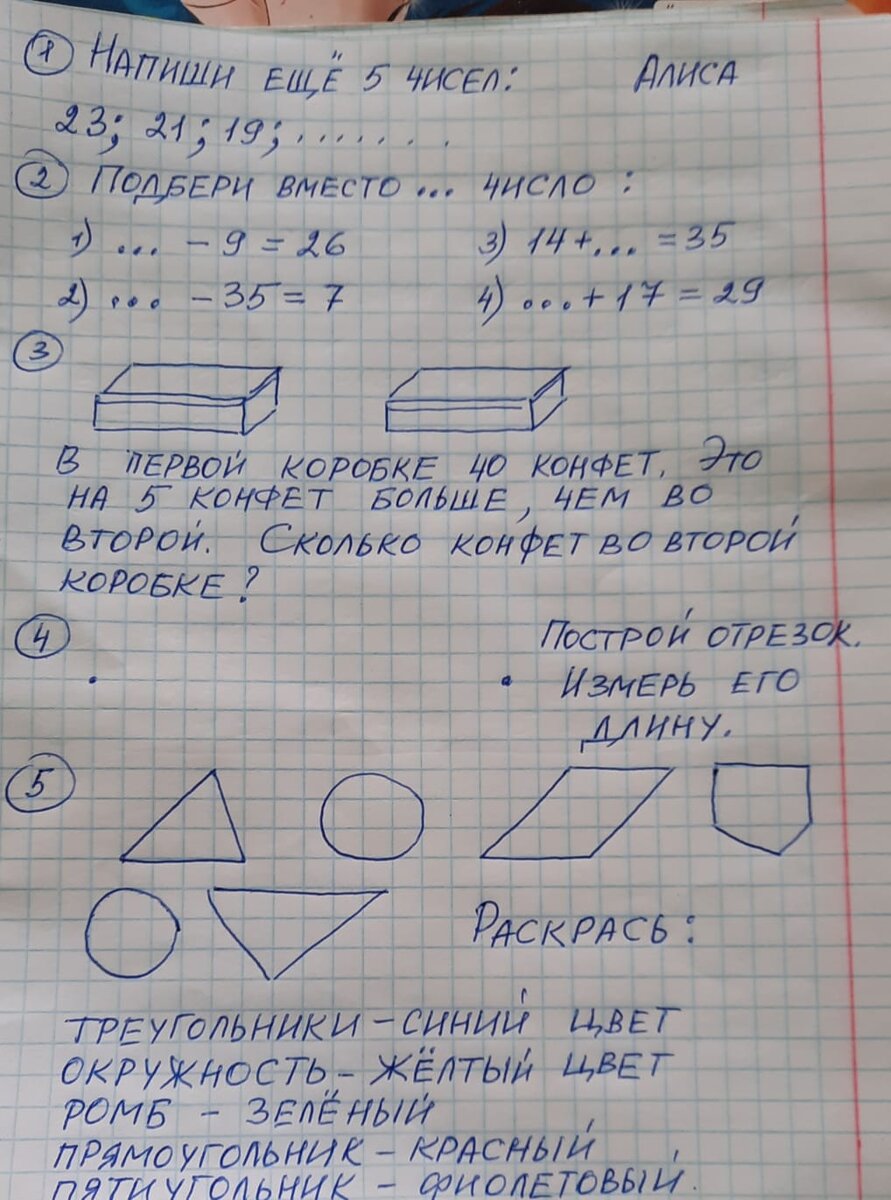 1 Напиши ещё 5 чисел: Алиса
23; 21; 19; .......
2 Подбери вместо ... число:
1) ... - 9 = 26 3) 14+... = 35
2) ... - 35 = 7 4) ...+17 = 29
3
В первой коробке 40 конфет. Это
на 5 конфет больше, чем во
второй. Сколько конфет во второй
коробке?
4 Построй отрезок.
Измерь его
длину.
5
Раскрась:
Треугольники - синий цвет
окружность - жёлтый цвет
ромб - зелёный
прямоугольник - красный
пятиугольник - фиолетовый.